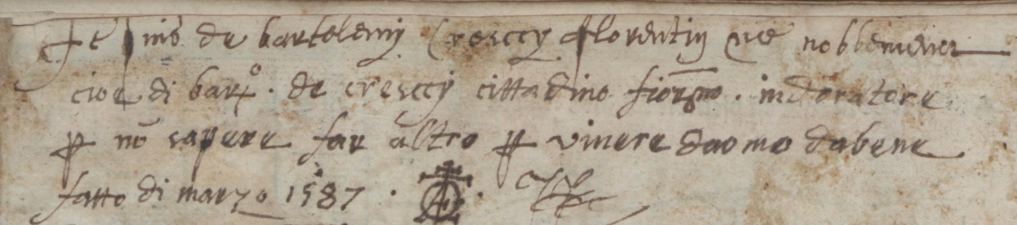 de bartolomij Cresccij florentin
cioe di bart.o de cresccij cittadino fior.no indoratore
p no sapere far altro p vivere da omo dabene
fatto di marzo 1587